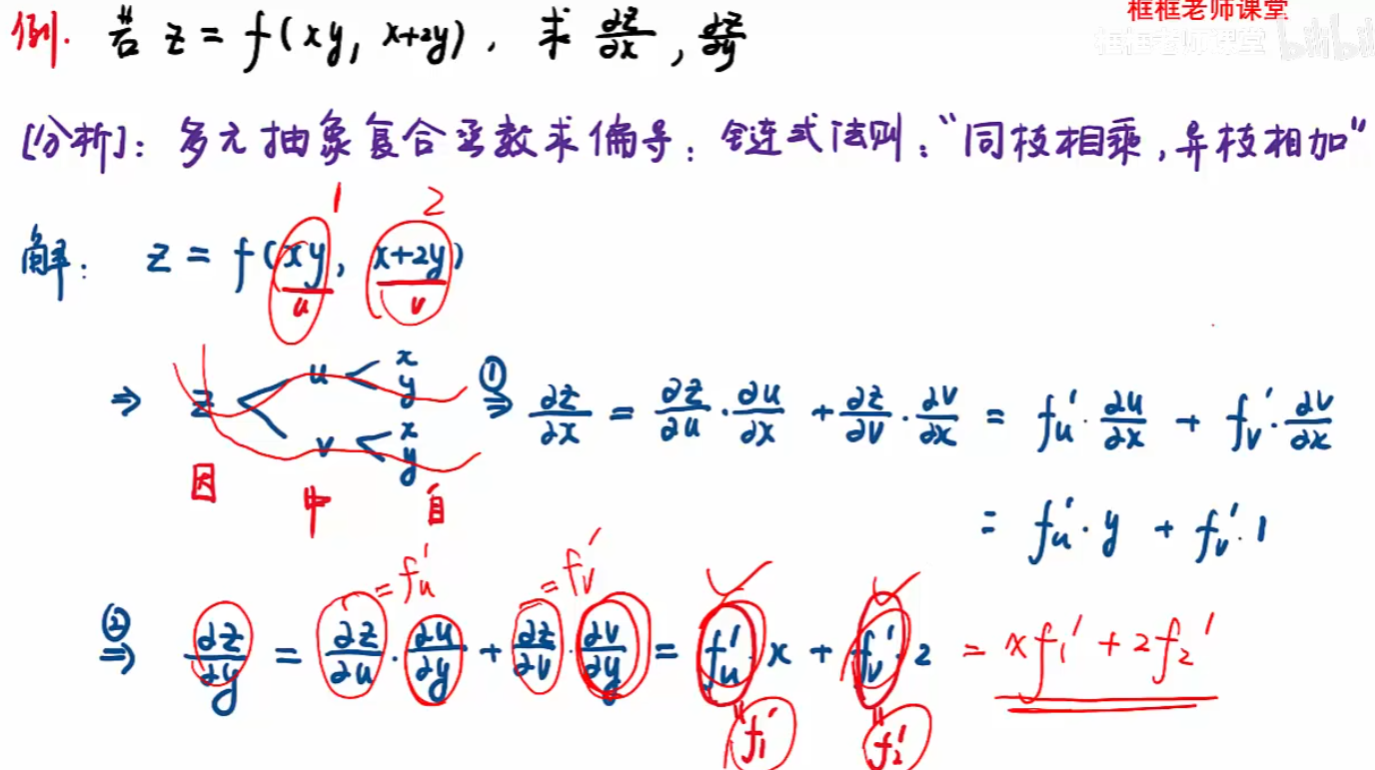 框框老师课堂
框框老师课堂 bilibili
例. 若 z = f(xy, x+2y), 求 ∂z/∂x, ∂z/∂y
[分析]: 多元抽象复合函数求偏导: 链式法则: "同枝相乘, 异枝相加"
1 2
解: z = f(xy, x+2y)
u v
⇒ z < u < x y v < x y
因 中 自
① ⇒ ∂z/∂x = ∂z/∂u · ∂u/∂x + ∂z/∂v · ∂v/∂x = fu' · ∂u/∂x + fv' · ∂v/∂x
= fu' · y + fv' · 1
= fu' = fv'
② ⇒ ∂z/∂y = ∂z/∂u · ∂u/∂y + ∂z/∂v · ∂v/∂y = fu' · x + fv' · 2 = xf1' + 2f2'
" f1' " f2'